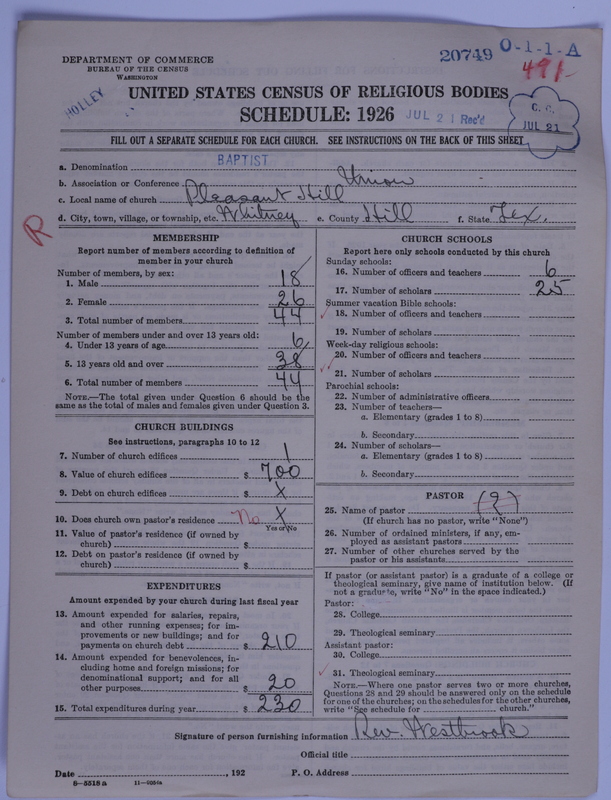 20749 O-1-1-A
491-
DEPARTMENT OF COMMERCE
BUREAU OF THE CENSUS
WASHINGTON
HOLLEY
UNITED STATES CENSUS OF RELIGIOUS BODIES
SCHEDULE: 1926
JUL 21 Rec'd
C. C.
JUL 21
FILL OUT A SEPARATE SCHEDULE FOR EACH CHURCH. SEE INSTRUCTIONS ON THE BACK OF THIS SHEET
a. Denomination BAPTIST
b. Association or Conference Union
c. Local name of church Pleasant Hill
d. City, town, village, or township, etc. Whitney e. County Hill f. State Tex.
R
MEMBERSHIP
Report number of members according to definition of
member in your church
Number of members, by sex:
1. Male 18
2. Female 26
3. Total number of members 44
Number of members under and over 13 years old:
4. Under 13 years of age 6
5. 13 years old and over 38
6. Total number of members 44
NOTE.—The total given under Question 6 should be the
same as the total of males and females given under Question 3.
CHURCH BUILDINGS
See instructions, paragraphs 10 to 12
7. Number of church edifices 1
8. Value of church edifices $ 700
9. Debt on church edifices $ X
10. Does church own pastor's residence No X
Yes or No
11. Value of pastor's residence (if owned by
church) $
12. Debt on pastor's residence (if owned by
church) $
EXPENDITURES
Amount expended by your church during last fiscal year
13. Amount expended for salaries, repairs,
and other running expenses; for im-
provements or new buildings; and for
payments on church debt $ 210
14. Amount expended for benevolences, in-
cluding home and foreign missions; for
denominational support; and for all
other purposes $ 20
15. Total expenditures during year $ 230
CHURCH SCHOOLS
Report here only schools conducted by this church
Sunday schools:
16. Number of officers and teachers 6
17. Number of scholars 25
Summer vacation Bible schools:
18. Number of officers and teachers
19. Number of scholars
Week-day religious schools:
20. Number of officers and teachers
21. Number of scholars
Parochial schools:
22. Number of administrative officers
23. Number of teachers—
a. Elementary (grades 1 to 8)
b. Secondary
24. Number of scholars—
a. Elementary (grades 1 to 8)
b. Secondary
PASTOR
25. Name of pastor (?)
(If church has no pastor, write "None")
26. Number of ordained ministers, if any, em-
ployed as assistant pastors
27. Number of other churches served by the
pastor or his assistants
If pastor (or assistant pastor) is a graduate of a college or
theological seminary, give name of institution below. (If
not a graduate, write "No" in the space indicated.)
Pastor:
28. College
29. Theological seminary
Assistant pastor:
30. College
31. Theological seminary
NOTE.—Where one pastor serves two or more churches,
Questions 28 and 29 should be answered only on the schedule
for one of the churches; on the schedules for the other churches,
write "See schedule for church."
Signature of person furnishing information Rev. Westbrook
Official title
Date , 192 P. O. Address
6—5518a 11—9052a